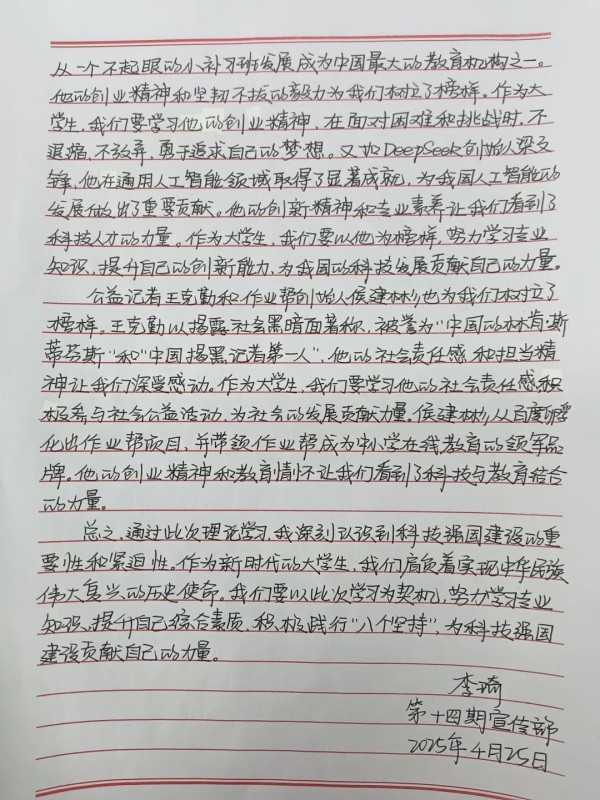 从一个不起眼的小补习班发展成为中国最大的教育机构之一。
他的创业精神和坚韧不拔的毅力为我们树立了榜样。作为大
学生,我们要学习他的创业精神,在面对困难和挑战时,不
退缩,不放弃,勇于追求自己的梦想。又如DeepSeek创始人梁文
锋,他在通用人工智能领域取得了显著成就,为我国人工智能的
发展做出了重要贡献。他的创新精神和专业素养让我们看到了
科技人才的力量。作为大学生,我们要以他为榜样,努力学习专业
知识、提升自己的创新能力、为我国的科技发展贡献自己的力量。
公益记者王克勤和作业帮创始人侯建彬也为我们树立了
榜样。王克勤以揭露社会黑暗面著称,被誉为“中国的林肯·斯
蒂芬斯”和“中国揭黑记者第一人”,他的社会责任感和担当精
神让我们深受感动。作为大学生,我们要学习他的社会责任感积
极参与社会公益活动,为社会的发展贡献力量。侯建彬从百度孵
化出作业帮项目,并带领作业帮成为中小学在线教育的领军品
牌。他的创业精神和教育情怀让我们看到了科技与教育结合
的力量。
总之,通过此次理论学习,我深刻认识到科技强国建设的重
要性和紧迫性。作为新时代的大学生,我们肩负着实现中华民族
伟大复兴的历史使命。我们要以此次学习为契机,努力学习专业
知识、提升自己综合素质,积极践行“八个坚持”,为科技强国
建设贡献自己的力量。
李琦
第十四期宣传部
2025年4月25日